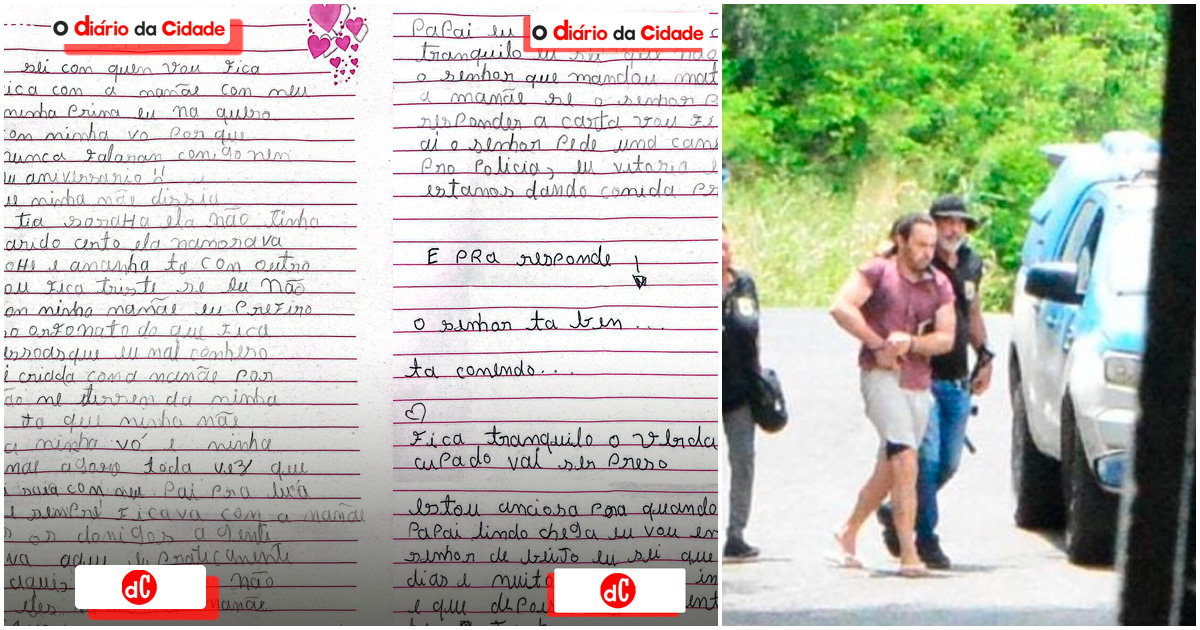 O Diário da Cidade
sei con quen vou fica
ica con a mamãe con meu
minha Prima eu na quero
on minha vó Por que
nunca Falaran comigo nem
u aniversario !!
ue minha mãe dissia
tia ela não tinha
arido certo ela namorava
oHe e amanha ta con outro
ou Fica triste se eu Não
on minha mamãe eu PreFiro
no orFonato do que Fica
essoas que eu mal conheso
i criada con a mamãe Por
ão me da minha
to que minha mãe
a minha vó e minha
mae agora toda vez que
saia con meu Pai Pra
e sempre Ficava con a mamãe
os a gente
va aqui e Praticamente
aqui, não
eles mamãe
dC
O Diário da Cidade
PaPai eu
tranquilo eu sei que não
o senhor que mandou mat
a mamãe se o senhor P
resPonder a carta vou
ai o senhor Pede uma can
Pro Policia, eu vitoria e
estamos dando comida Pr
E PRA responde
o senhor ta ben ...
ta comendo...
Fica tranquilo o Verda
cuPado vai ser Preso
estou anciosa Pra quando
PaPai lindo chega eu vou en
senhor de beijo eu sei que
dias e muito
e que
dC